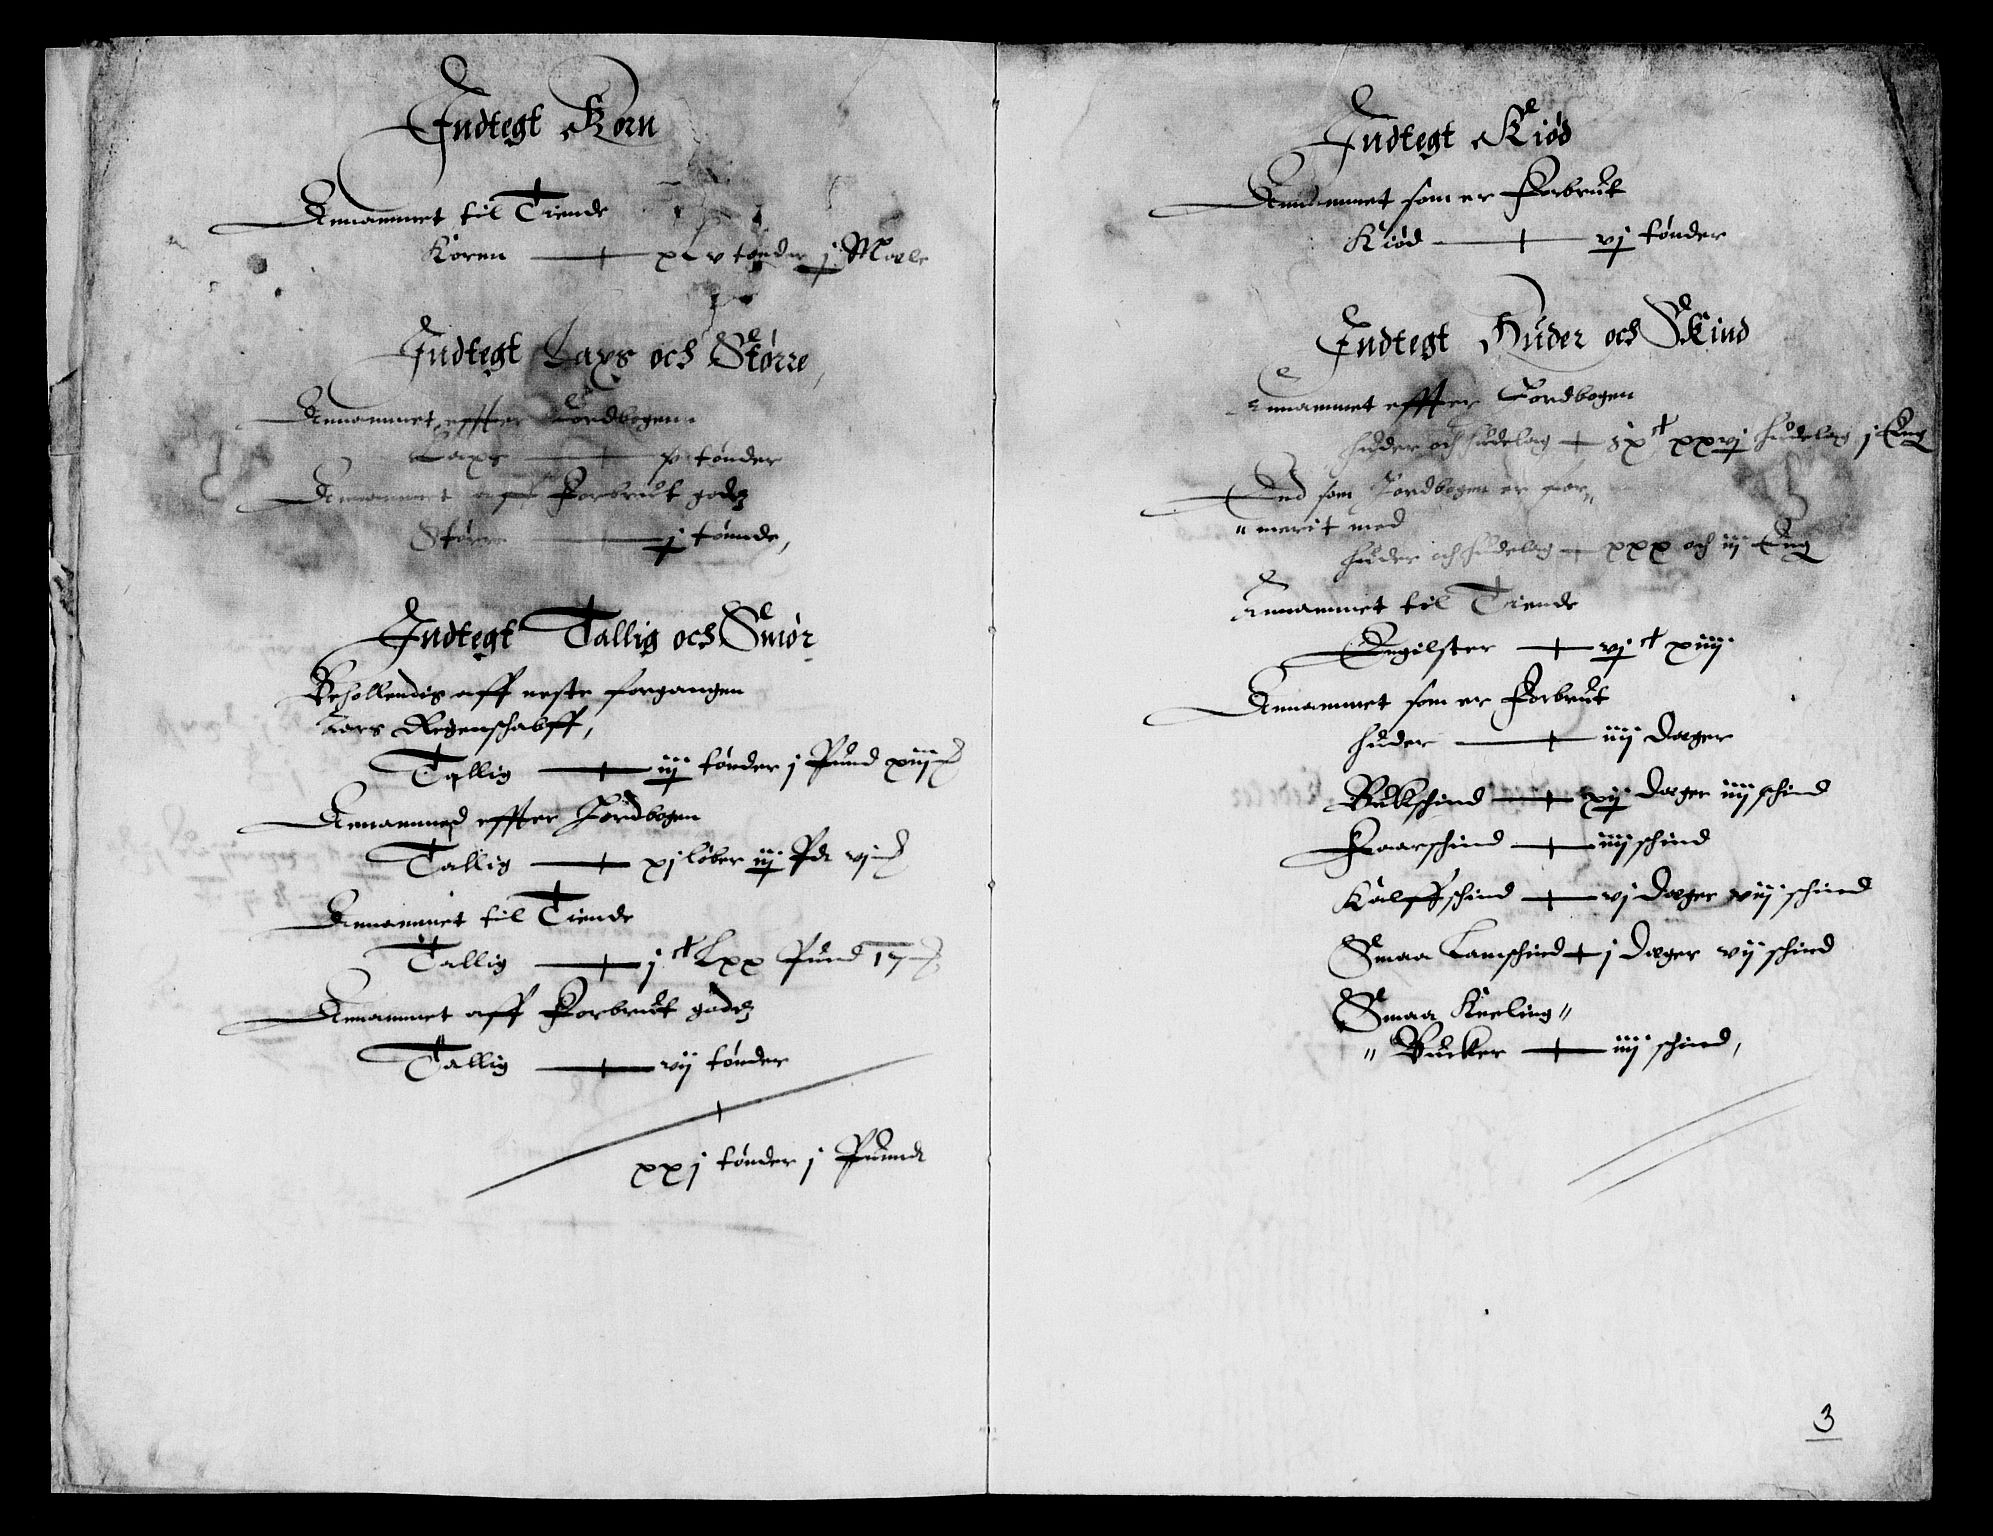 Indtegt Korn
Annammet til Tiende
Koren — xLv tønder j Møle
Indtegt Laxs och Større,
Annammet effter Jordbogen
Laxs — tønder
Annammet aff Forbrut godz
Større — j tønnde,
Indtegt Tallig och Smør
Behollendis aff neste forgangen
Aars Regenschabff,
Tallig — iij tønder j Pund xiij
Annammed effter Jordbogen
Tallig — xj løber iij Pd vj
Annammet til Tiende
Tallig — j c Lxx Pund 17
Annammet aff Forbrut godz
Tallig — vij tønder
xxj tønder j Pund
Indtegt Kiød
Annammet som er Forbrut
Kiød — vj tønder
Indtegt Huder och Skind
Annammet effter Jordbogen
huder och hudelag — ix c xxvj hudelag j Eng
End som Jordbogen er for„
„merit med
huder och hudelag — xxx och iij Eng
Annammet til Tiende
Engilster — vj c xiiij
Annammet som er Forbrut
huder — iiij Dæger
Bukschind — xij Dæger iiij schind
Faarschind — iiij schind
Kalffschind — vj Dæger viij schind
Smaa Lamschind — j Dæger vij schind
Smaa Keeling„
„Bucker — iiij schind,
3